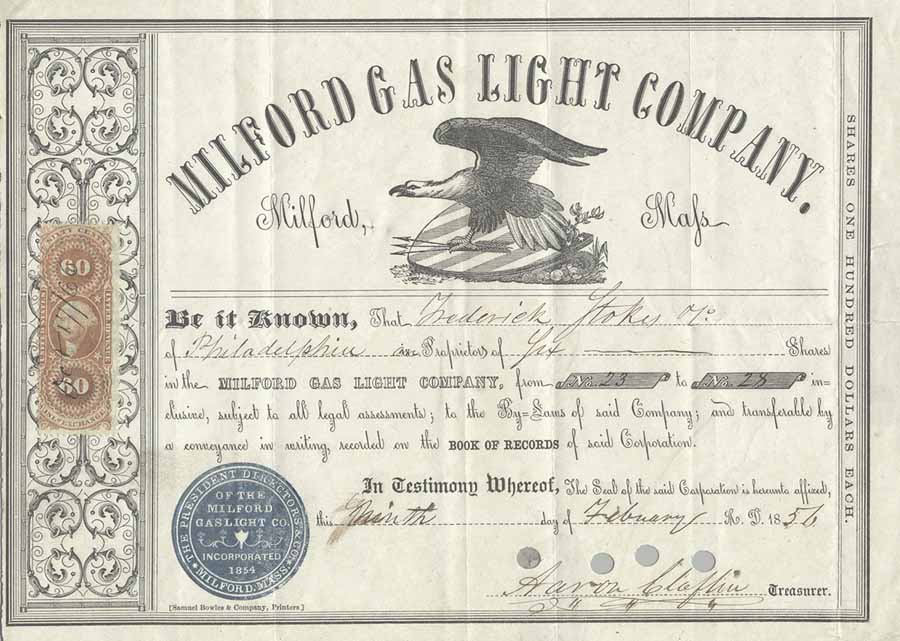 MILFORD GAS LIGHT COMPANY.
Milford, Mass
SHARES ONE HUNDRED DOLLARS EACH.
SIXTY CENTS
60
60
Be it Known, That Frederick Stokes
of Philadelphia are Proprietors of Six Shares
in the MILFORD GAS LIGHT COMPANY, from No. 23 to No. 28 in-
clusive, subject to all legal assessments; to the By-Laws of said Company; and transferable by
a conveyance in writing, recorded on the BOOK OF RECORDS of said Corporation.
In Testimony Whereof, The Seal of the said Corporation is hereunto affixed,
this Ninth day of February A. D. 1856
Aaron Claflin Treasurer.
THE PRESIDENT DIRECTORS & CO.
OF THE
MILFORD
GASLIGHT CO.
INCORPORATED
1854
MILFORD, MASS.
[Samuel Bowles & Company, Printers]